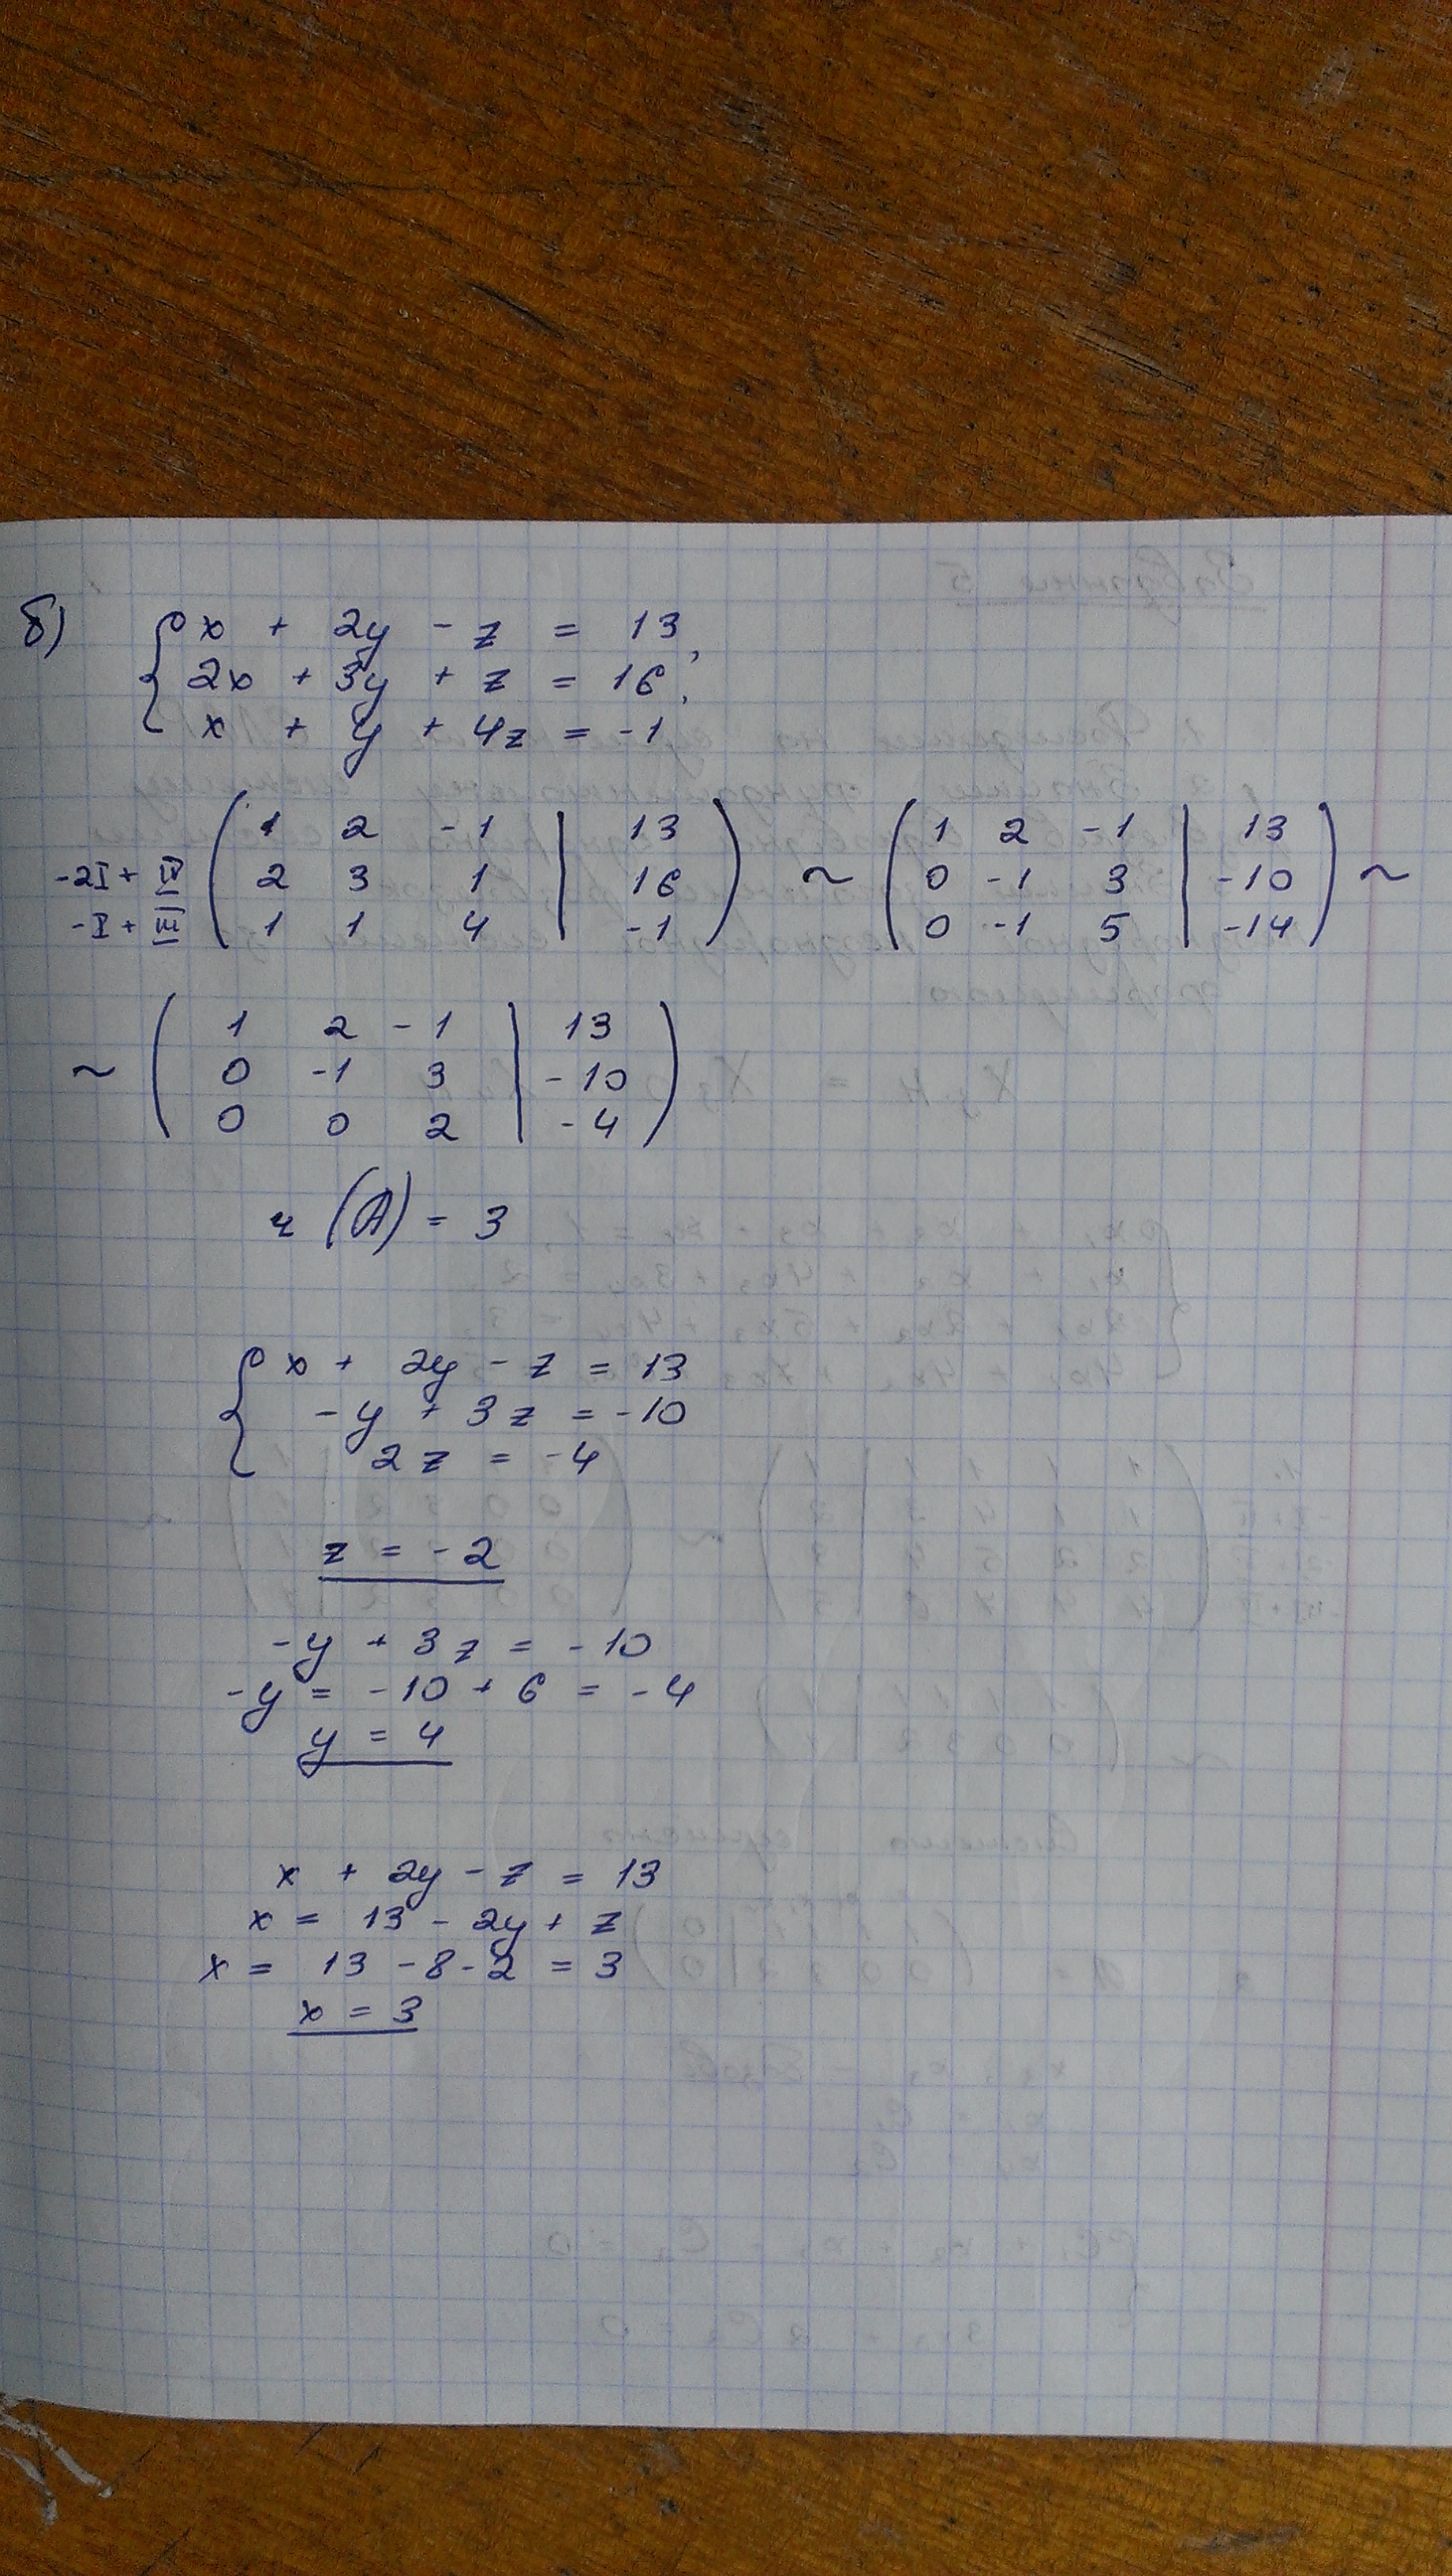 б) { x + 2y - z = 13,
2x + 3y + z = 16,
x + y + 4z = -1
( 1 2 -1 | 13 ) ~ ( 1 2 -1 | 13 ) ~
-2I + II ( 2 3 1 | 16 ) ( 0 -1 3 | -10 )
-I + III ( 1 1 4 | -1 ) ( 0 -1 5 | -14 )
~ ( 1 2 -1 | 13 )
( 0 -1 3 | -10 )
( 0 0 2 | -4 )
r (A) = 3
{ x + 2y - z = 13
-y + 3z = -10
2z = -4
z = -2
-y + 3z = -10
-y = -10 + 6 = -4
y = 4
x + 2y - z = 13
x = 13 - 2y + z
x = 13 - 8 - 2 = 3
x = 3